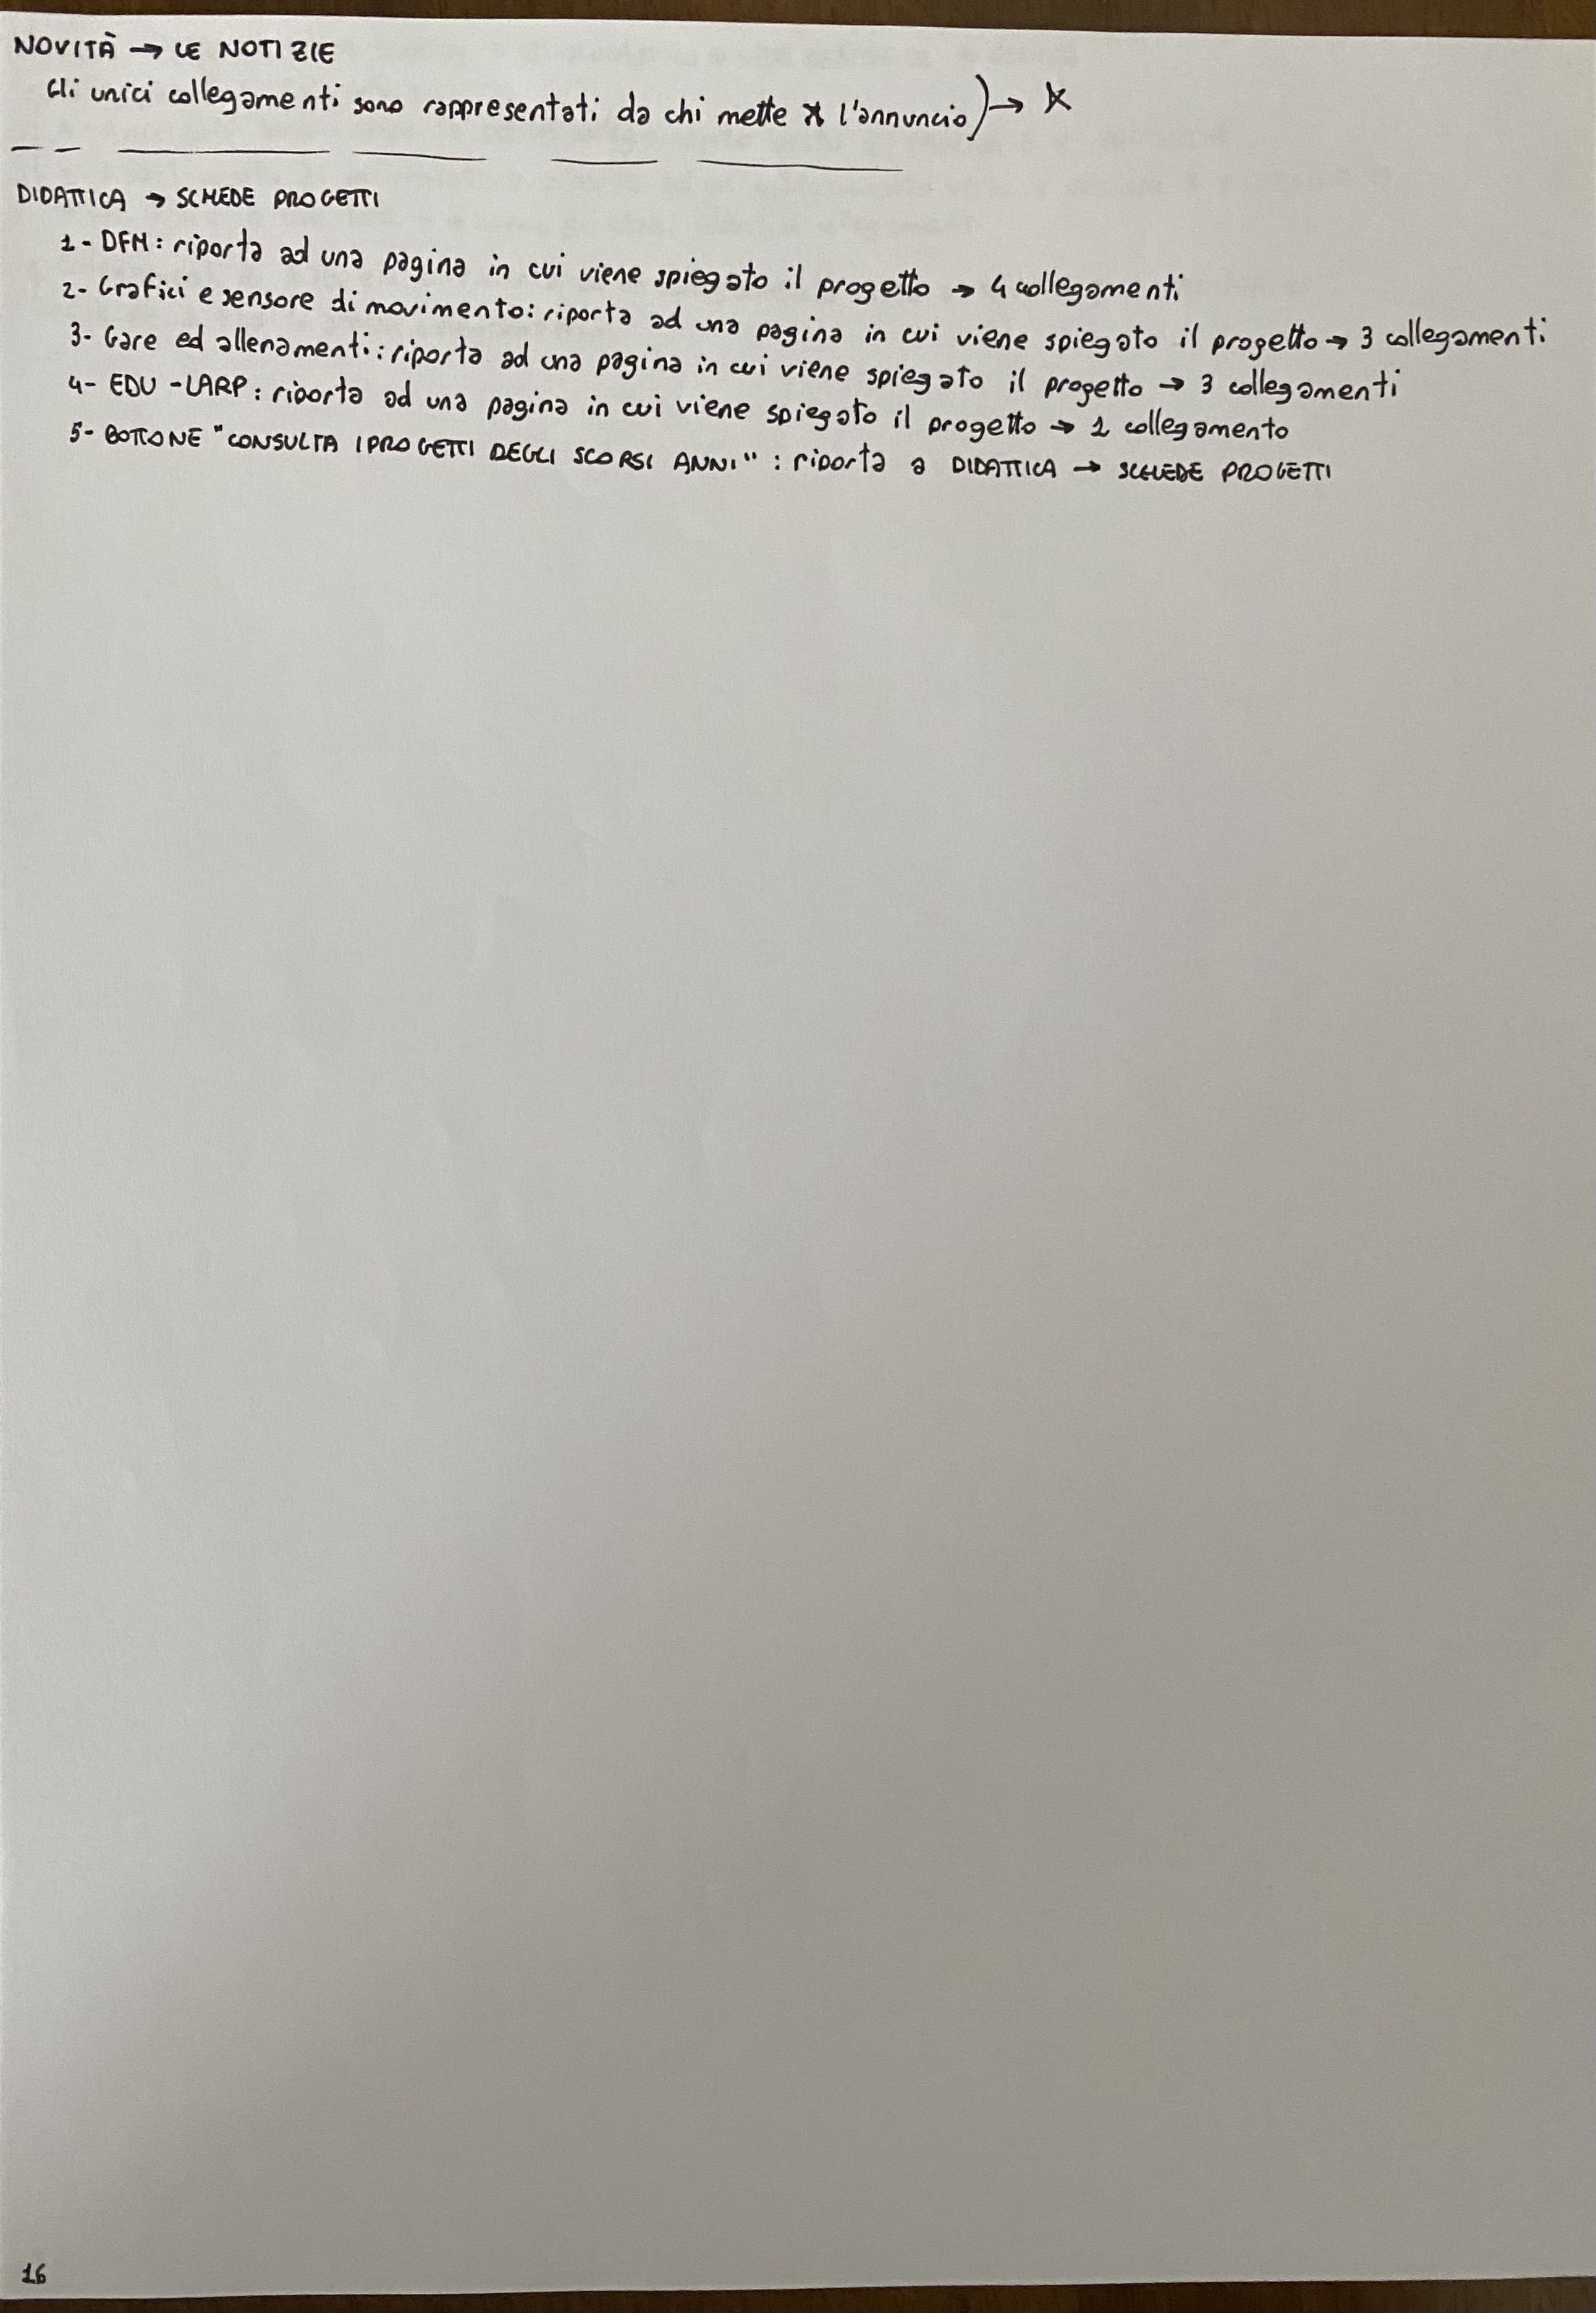 NOVITÀ → LE NOTIZIE
Gli unici collegamenti sono rappresentati da chi mette l'annuncio) →
DIDATTICA → SCHEDE PROGETTI
1- DFM: riporta ad una pagina in cui viene spiegato il progetto → 4 collegamenti
2- Grafici e sensore di movimento: riporta ad una pagina in cui viene spiegato il progetto → 3 collegamenti
3- Gare ed allenamenti: riporta ad una pagina in cui viene spiegato il progetto → 3 collegamenti
4- EDU-LARP: riporta ad una pagina in cui viene spiegato il progetto → 1 collegamento
5- BOTTONE "CONSULTA I PROGETTI DEGLI SCORSI ANNI": riporta a DIDATTICA → SCHEDE PROGETTI
16